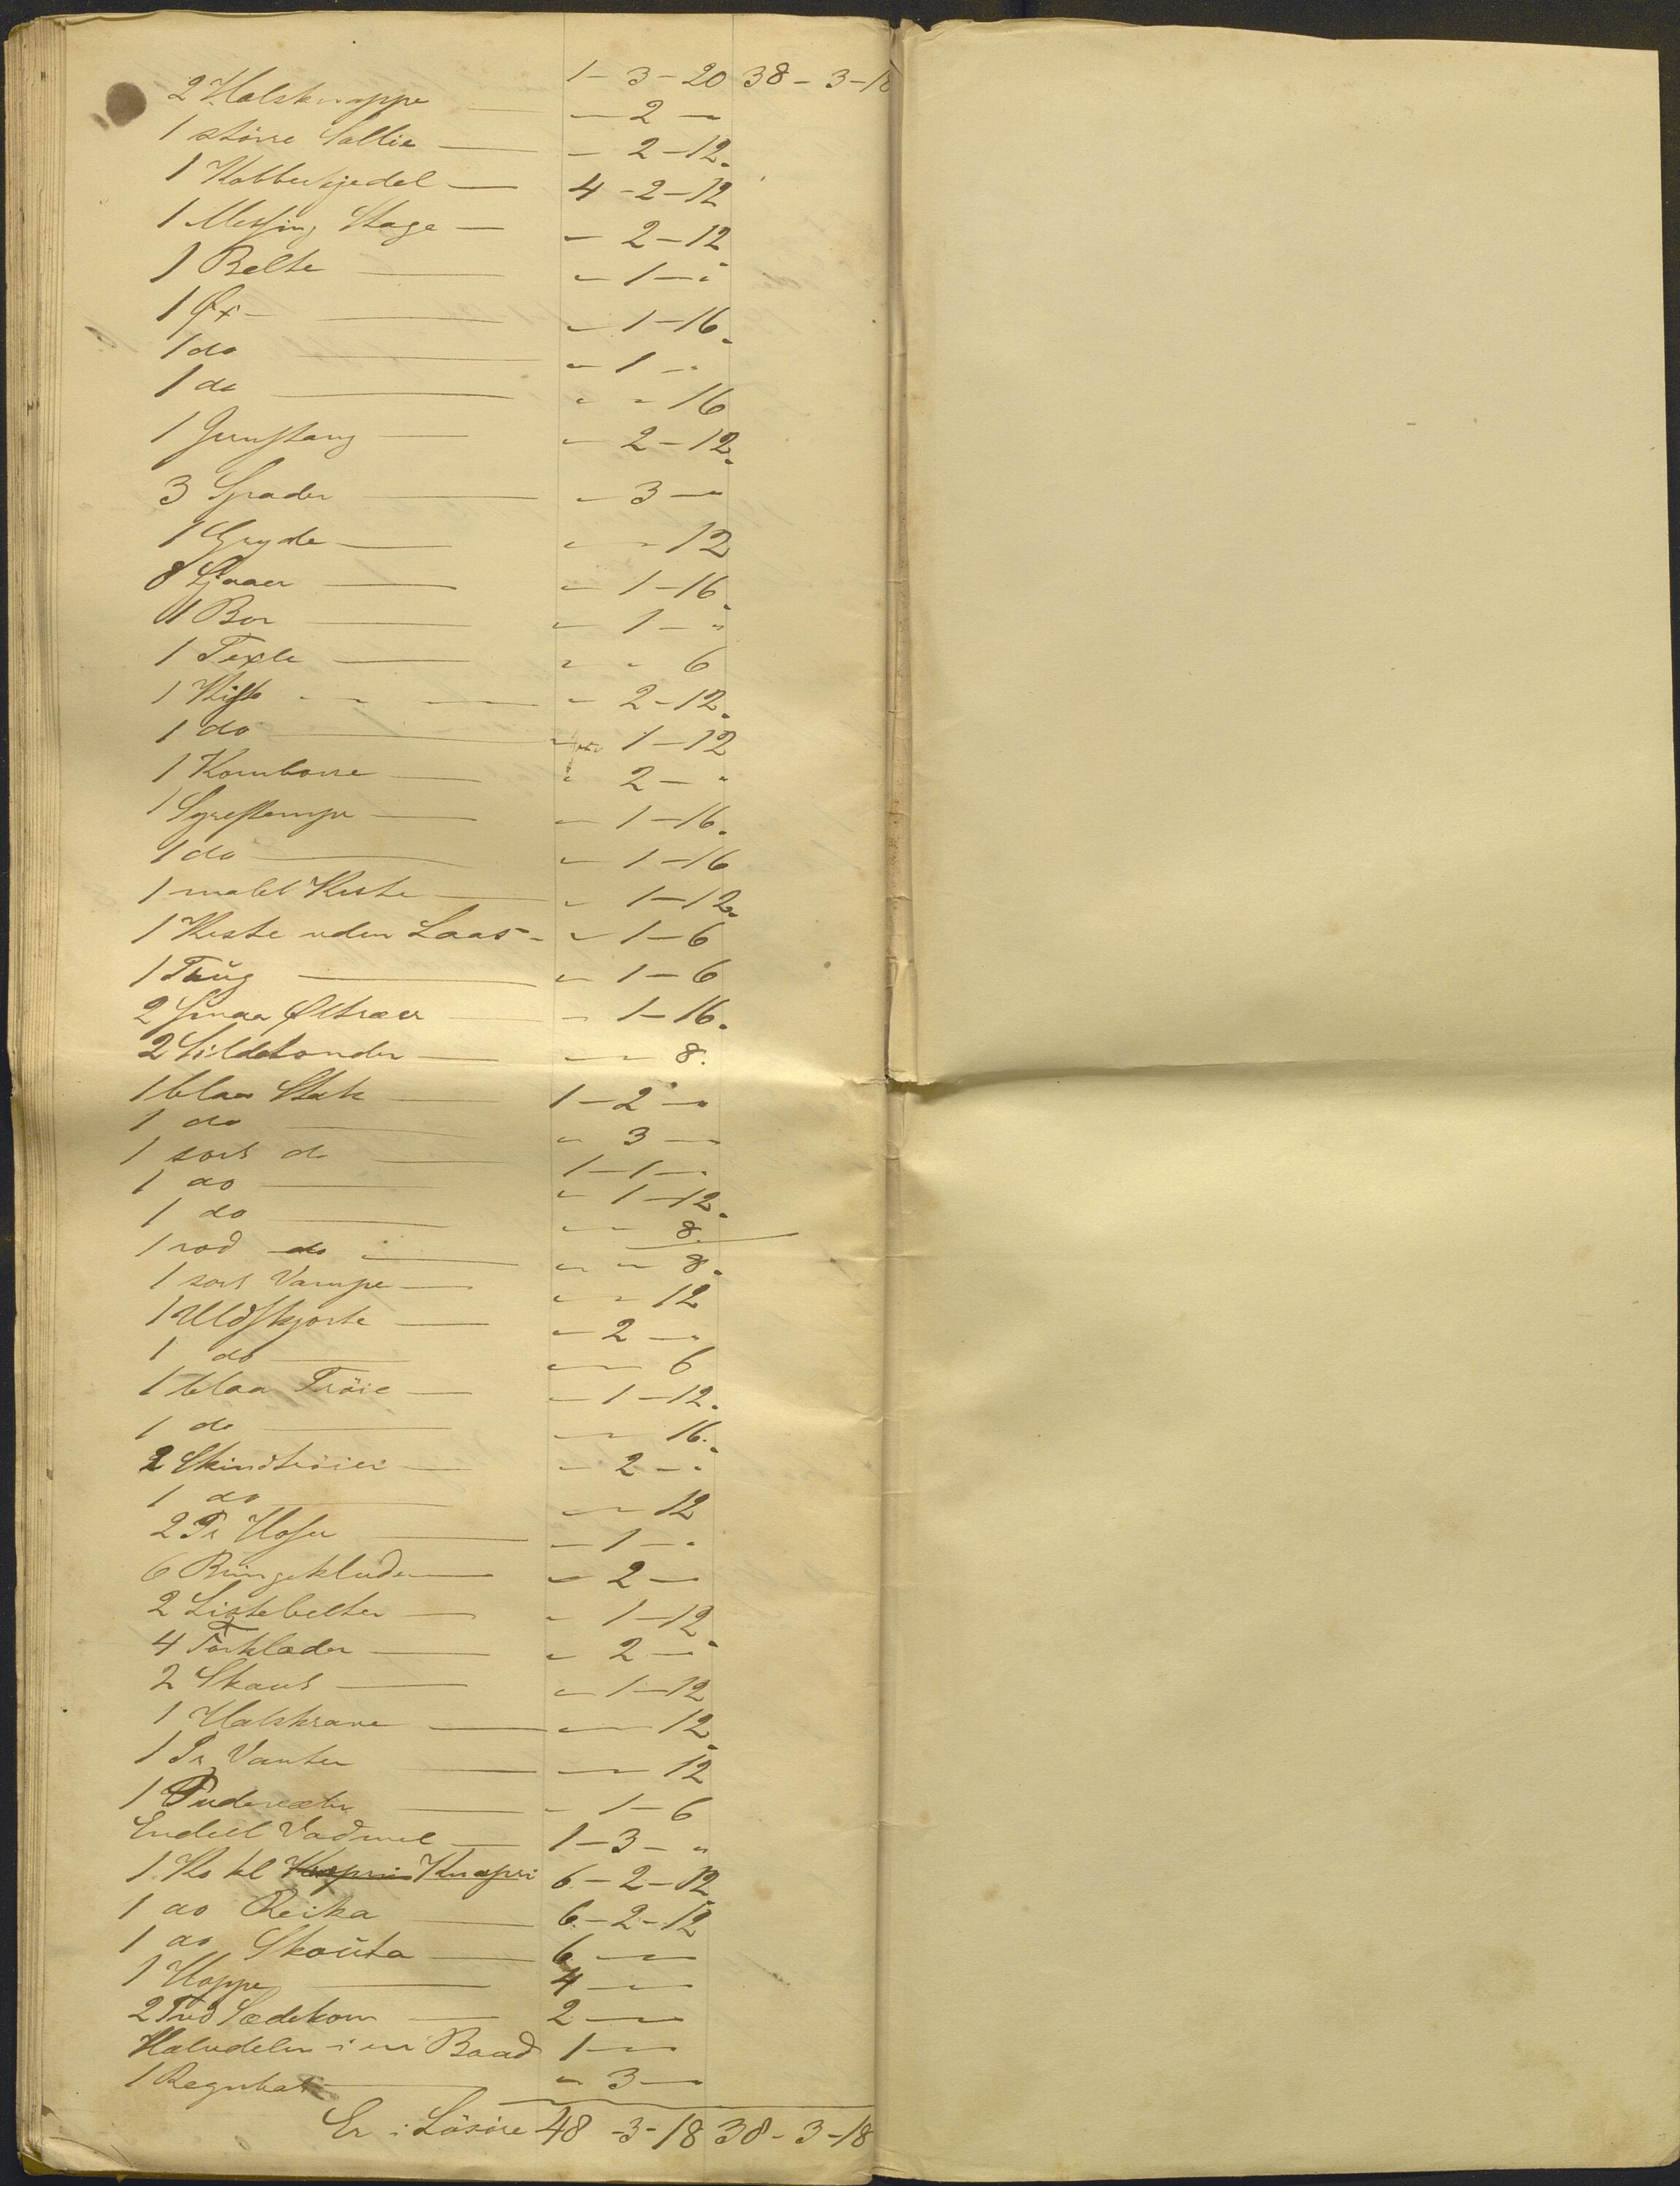 1 - 3 - 20 38 - 3 - 18
2 Halsknappe — " 2 — "
1 større Sallie — " 2 - 12
1 Kobberkjedel — 4 - 2 - 12
1 Messing Stage — " 2 - 12
1 Belte — " 1 — "
1 Øx — " 1 - 16
1 do — " 1 — "
1 do — " " 16
1 Jernstang — " 2 - 12
3 Spader — " 3 — "
1 Gryde — " " 12
8 Ljaaer — " 1 - 16
1 Bor — " 1 — "
1 Texle — " " 6
1 Kiste — " 2 - 12
1 do — " 1 - 12
1 Kornborre — " 2 — "
1 Syrestampe — " 1 - 16
1 do — " 1 - 16
1 malet Kiste — " 1 - 12
1 Kiste uden Laas - " 1 - 6
1 Trŭg — " 1 - 6
2 smaa Øltræer — " 1 - 16
2 Sildetønder — " " 8
1 blaa Stak — 1 - 2 — "
1 do — " 3 — "
1 sort do — 1 - 1 — "
1 do — " 1 - 12
1 do — " " 8
1 rød do — " " 8
1 sort Vampe — " " 12
1 Uldskjorte — " 2 — "
1 do — " " 6
1 blaa Trøie — " 1 - 12
1 do — " " 16
2 Skindtrøier — " 2 — "
1 do — " " 12
2 Pr Hoser — " 1 — "
6 Bringeklude — " 2 — "
2 Listebelter — " 1 - 12
4 Forklæder — " 2 — "
2 Skaut — " 1 - 12
1 Halskrave — " " 12
1 Pr Vanter — " " 12
1 — " 1 - 6
Endeel Vadmel — 1 - 3 — "
1 Ko kl Knapri 6 - 2 - 12
1 do Reika — 6 - 2 - 12
1 do Skoŭta — 6 — "
1 Hoppe — 4 — "
2 Tnd Sædekorn — 2 — "
Halvdelen i en Baad 1 — "
1 Regnhat — " 3 — "
Er i Løsøre 48 - 3 - 18 38 - 3 - 18